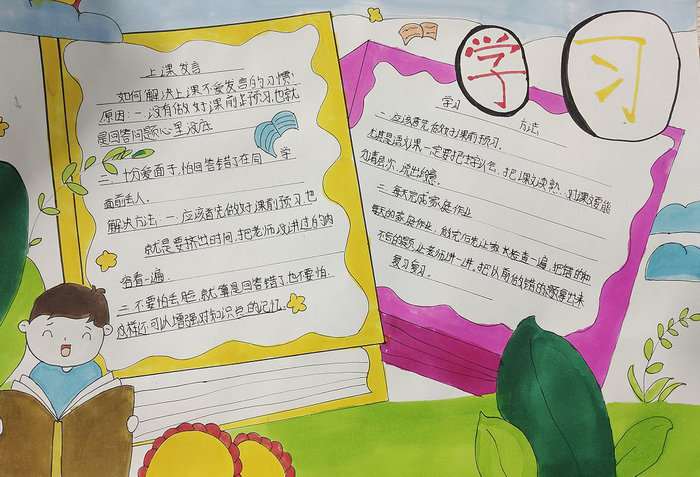 学习
上课发言
如何解决上课不爱发言的习惯
原因:一.没有做好课前预习,也就
是回答问题心里没底
二、十分爱面子,怕回答错了在同学
面前丢人。
解决方法:一.应该首先做好课前预习,也
就是要挤出时间,把老师没讲过的内
容看一遍
二.不要怕丢脸,就算是回答错了也不要怕.
这样还可以增强对知识点的记忆.
学习方法
一.应该首先做好课前预习.
尤其是语文课一定要把生字认会,把课文读熟,对课文要能
分清层次,说出
二.每天完成家庭作业
每天的家庭作业,做完后先让家长检查一遍,把错的和
不会的题,让老师讲一讲.把以前做错的题拿出来
复习复习.